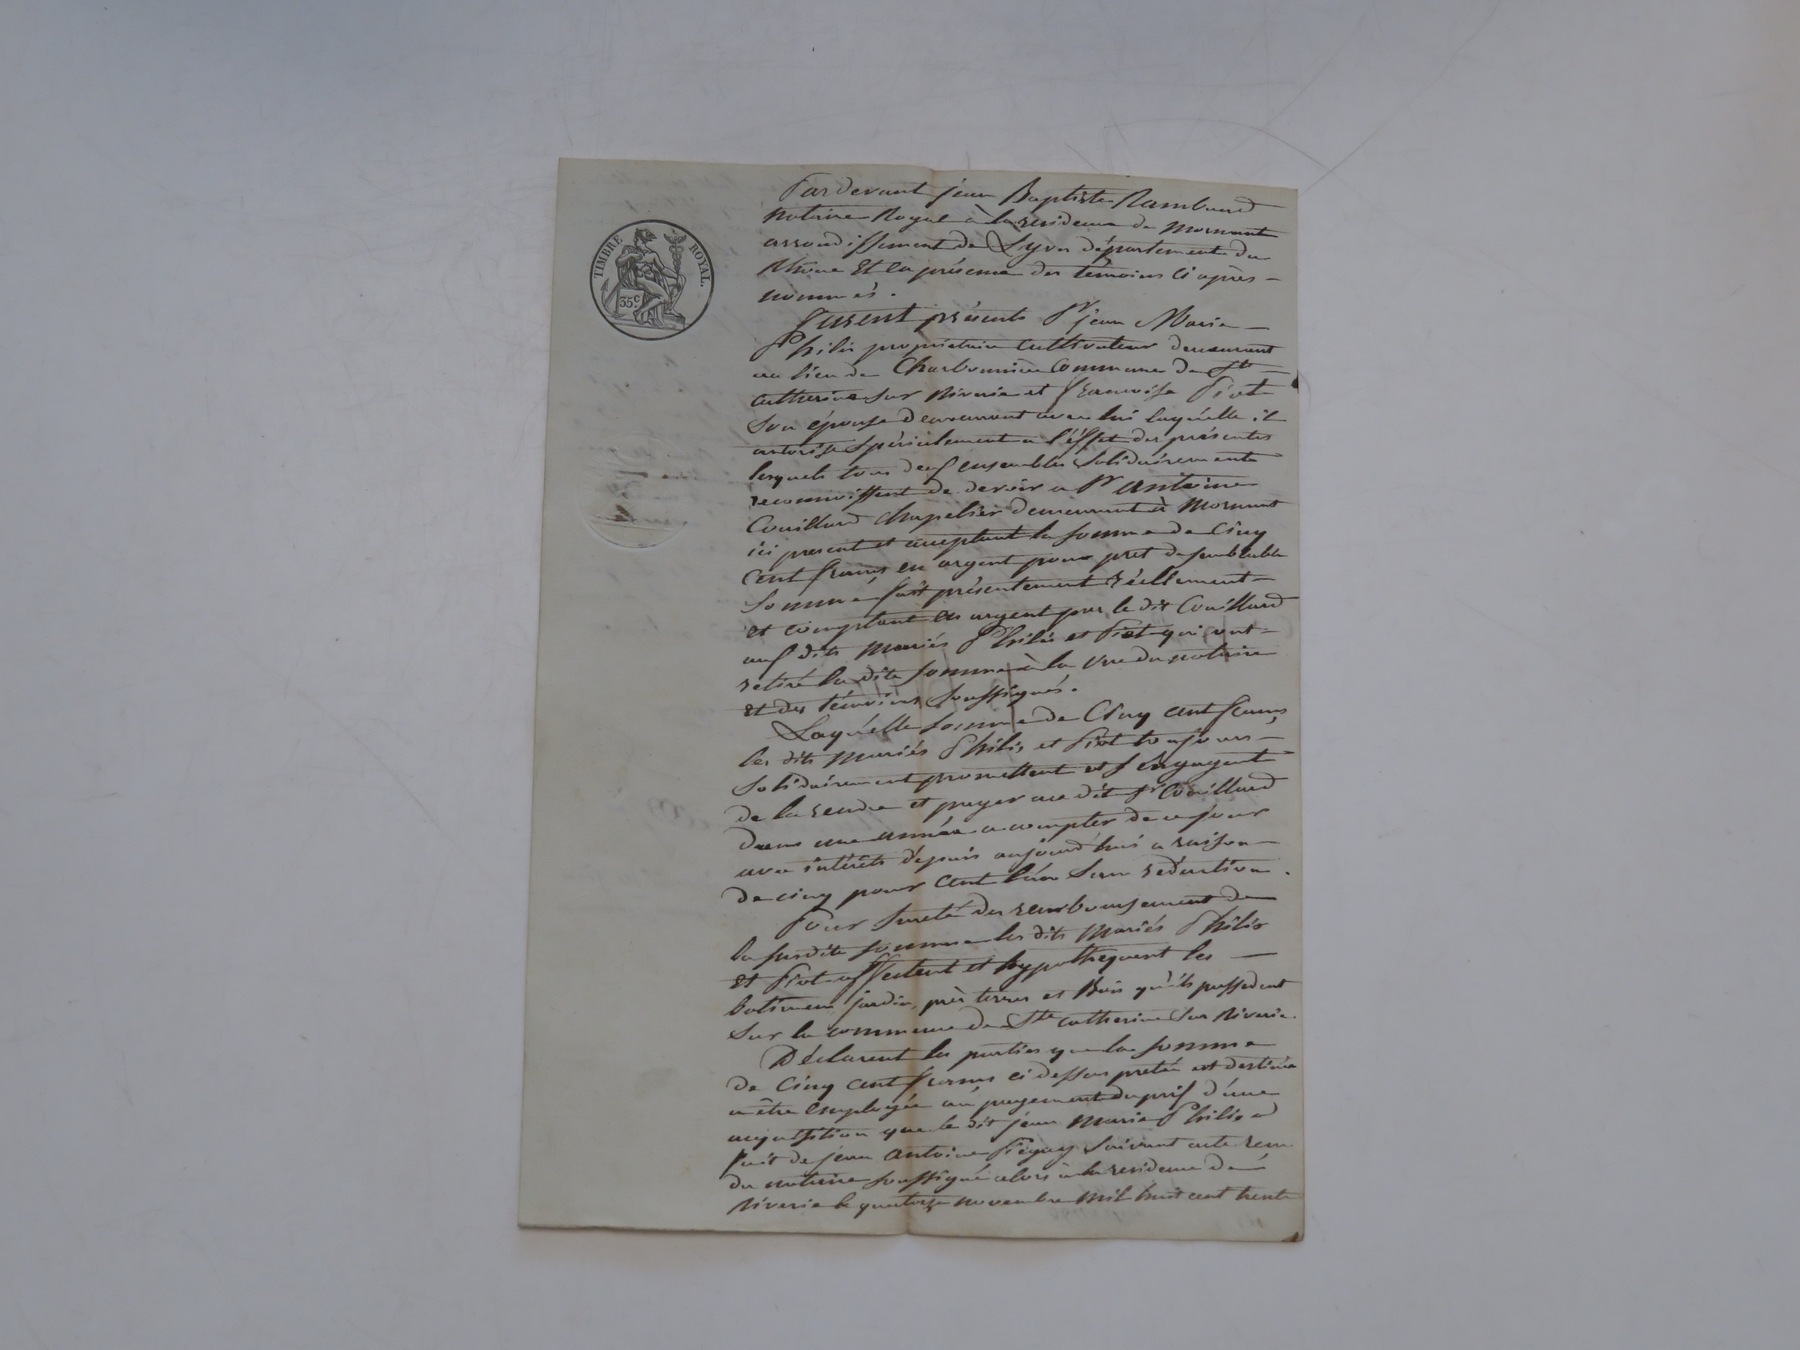 TIMBRE ROYAL.
35c
Pardevant jean Baptiste Rambaud
notaire Royal à la residence de Mornant
arrondissement de Lyon département du
Rhône Et en présence des temoins ci après
nommés.
Furent présents Sr jean Marie
Philis propriétaire cultivateur demeurant
au lieu de Charbonnière Commune de Ste
Catherine sur Riverie et francoise Piot
son épouse demeurant avec lui laquelle il
autorise spécialement a l'éffet des présentes
lesquels tous deux ensembles solidairement
reconnoissent de devoir a Sr antoine
Couillard chapelier demeurant à Mornant
ici present et acceptant la somme de Cinq
cent francs en argent pour pret de semblable
somme fait présentement réellement
et comptant en argent par le dit Couillard
aux dits mariés Philis et Piot qui ont
retiré la dite somme à la vue du notaire
et des témoins soussignés.
Laquelle somme de Cinq cent francs
les dits mariés Philis et Piot toujours
solidairement promettent et s'engagent
de la rendre et payer au dit Sr Couillard
dans une année a compter de ce jour
avec intérêts depuis aujourd'hui a raison
de cinq pour cent l'an sans réduction.
Pour sureté du remboursement de
la susdite somme les dits Mariés Philis
et Piot affectent et hypothequent les
batimens jardin, près terres et Bois qu'ils possedent
sur la commune de Ste catherine sur Riverie.
Déclarent les parties que la somme
de Cinq cent francs ci dessus pretée est destinée
a être employée au payement du prix d'une
acquisition que le dit jean Marie Philis a
fait de jean antoine suivant acte recu
du notaire soussigné alors à la residence de
Riverie le quatorze novembre mil huit cent trente